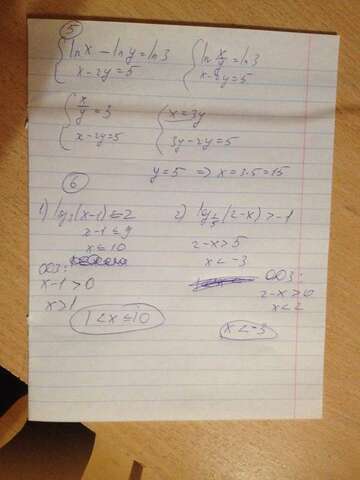 5
{ ln x - ln y = ln 3
x - 2y = 5
{ ln x/y = ln 3
x - 2y = 5
{ x/y = 3
x - 2y = 5
{ x = 3y
3y - 2y = 5
y = 5 => x = 3·5 = 15
6
1) log3(x-1) ≤ 2
x-1 ≤ 9
x ≤ 10
ОДЗ:
x-1 > 0
x > 1
1 < x ≤ 10
2) log1/5(2-x) > -1
2-x > 5
x < -3
ОДЗ:
2-x > 0
x < 2
x < -3